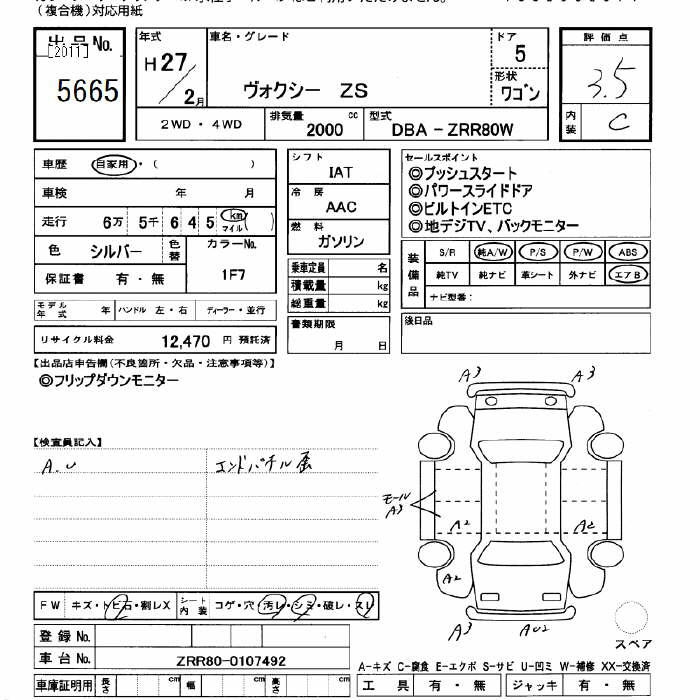 (複合機)対応用紙
出品No.
[2011]
5665
年式
H27/2月
車名・グレード
ヴォクシー ZS
ドア
5
形状
ワゴン
評価点
3.5
内装
C
2WD・4WD
排気量 cc
2000
型式
DBA-ZRR80W
車歴 自家用・( )
車検 年 月
走行 6万 5千 6 4 5 km マイル ( )
色 シルバー 色替
カラーNo.
1F7
保証書 有・無
モデル年式 年 ハンドル 左・右 ディーラー・並行
リサイクル料金 12,470 円 預託済
シフト
IAT
冷房
AAC
燃料
ガソリン
乗車定員 名
積載量 kg
総重量 kg
書類期限
月 日
セールスポイント
◎プッシュスタート
◎パワースライドドア
◎ビルトインETC
◎地デジTV、バックモニター
装備品
S/R 純A/W P/S P/W ABS
純TV 純ナビ 革シート 外ナビ エアB
ナビ型番:
後日品
【出品店申告欄(不良箇所・欠品・注意事項等)】
◎フリップダウンモニター
【検査員記入】
A.U
A3 A3
モール
A3
A2 A2
A2
A3 AU2
FW キズ・トビ石・割レX シート内装 コゲ・穴・汚レ・シミ・破レ・スレ
登録No.
車台No. ZRR80-0107492
車庫証明用 長さ cm 幅 cm 高さ cm
スペア
A-キズ C-腐食 E-エクボ S-サビ U-凹ミ W-補修 XX-交換済
工具 有・無 ジャッキ 有・無